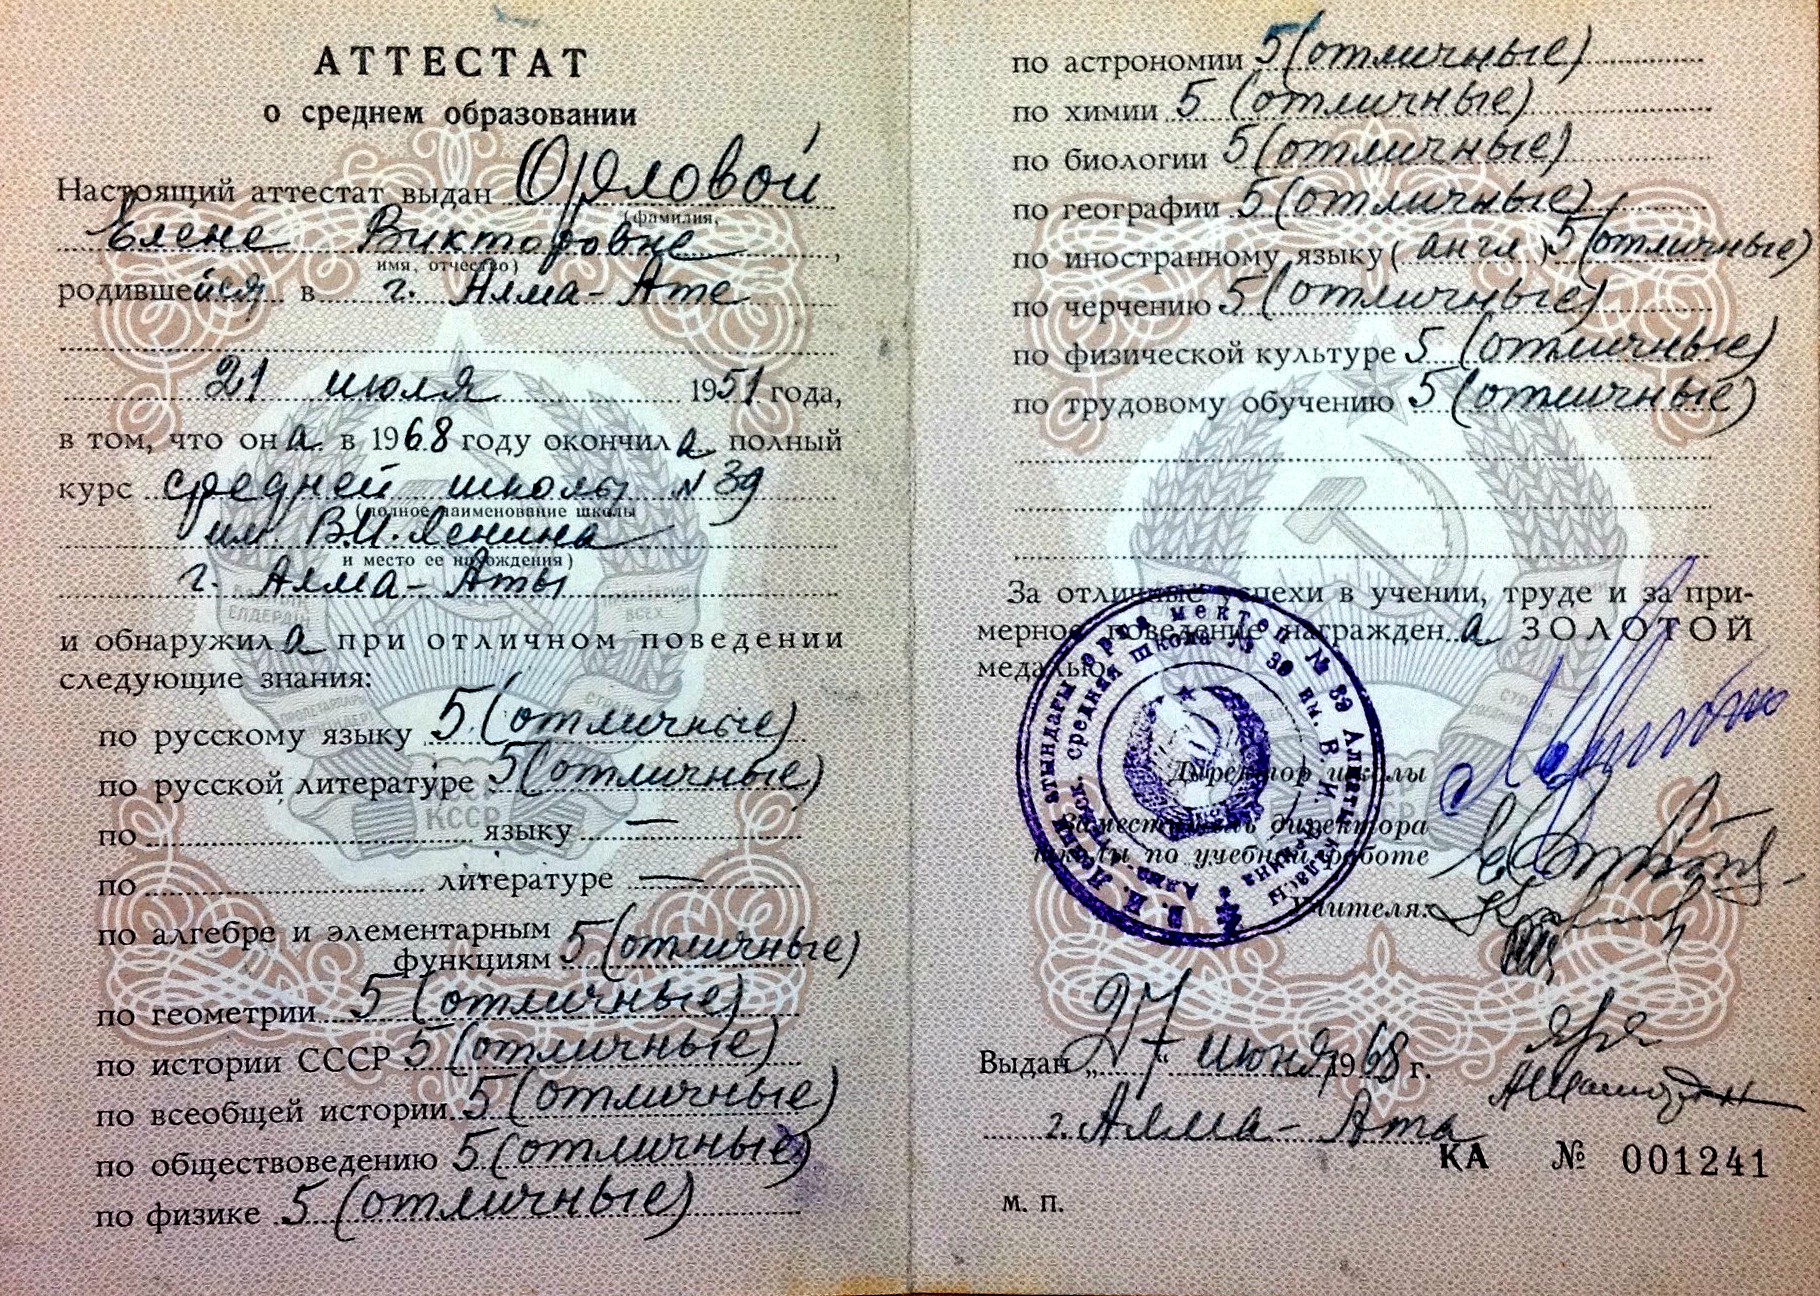 АТТЕСТАТ
о среднем образовании
Настоящий аттестат выдан Орловой
(фамилия,
Елене Викторовне,
имя, отчество)
родившейся в г. Алма-Ате
21 июля 1951 года,
в том, что она в 1968 году окончила полный
курс средней школы № 39
(полное наименование школы
им. В.И. Ленина
и место ее нахождения)
г. Алма-Аты
и обнаружила при отличном поведении
следующие знания:
по русскому языку 5 (отличные)
по русской литературе 5 (отличные)
по языку —
по литературе —
по алгебре и элементарным
функциям 5 (отличные)
по геометрии 5 (отличные)
по истории СССР 5 (отличные)
по всеобщей истории 5 (отличные)
по обществоведению 5 (отличные)
по физике 5 (отличные)
по астрономии 5 (отличные)
по химии 5 (отличные)
по биологии 5 (отличные)
по географии 5 (отличные)
по иностранному языку (англ) 5 (отличные)
по черчению 5 (отличные)
по физической культуре 5 (отличные)
по трудовому обучению 5 (отличные)
За отличные успехи в учении, труде и за при-
мерное поведение награждена ЗОЛОТОЙ
медалью.
Директор школы
Заместитель директора
школы по учебной работе
Учителя:
Выдан „27“ июня 1968 г.
г. Алма-Ата
КА № 001241
м. п.